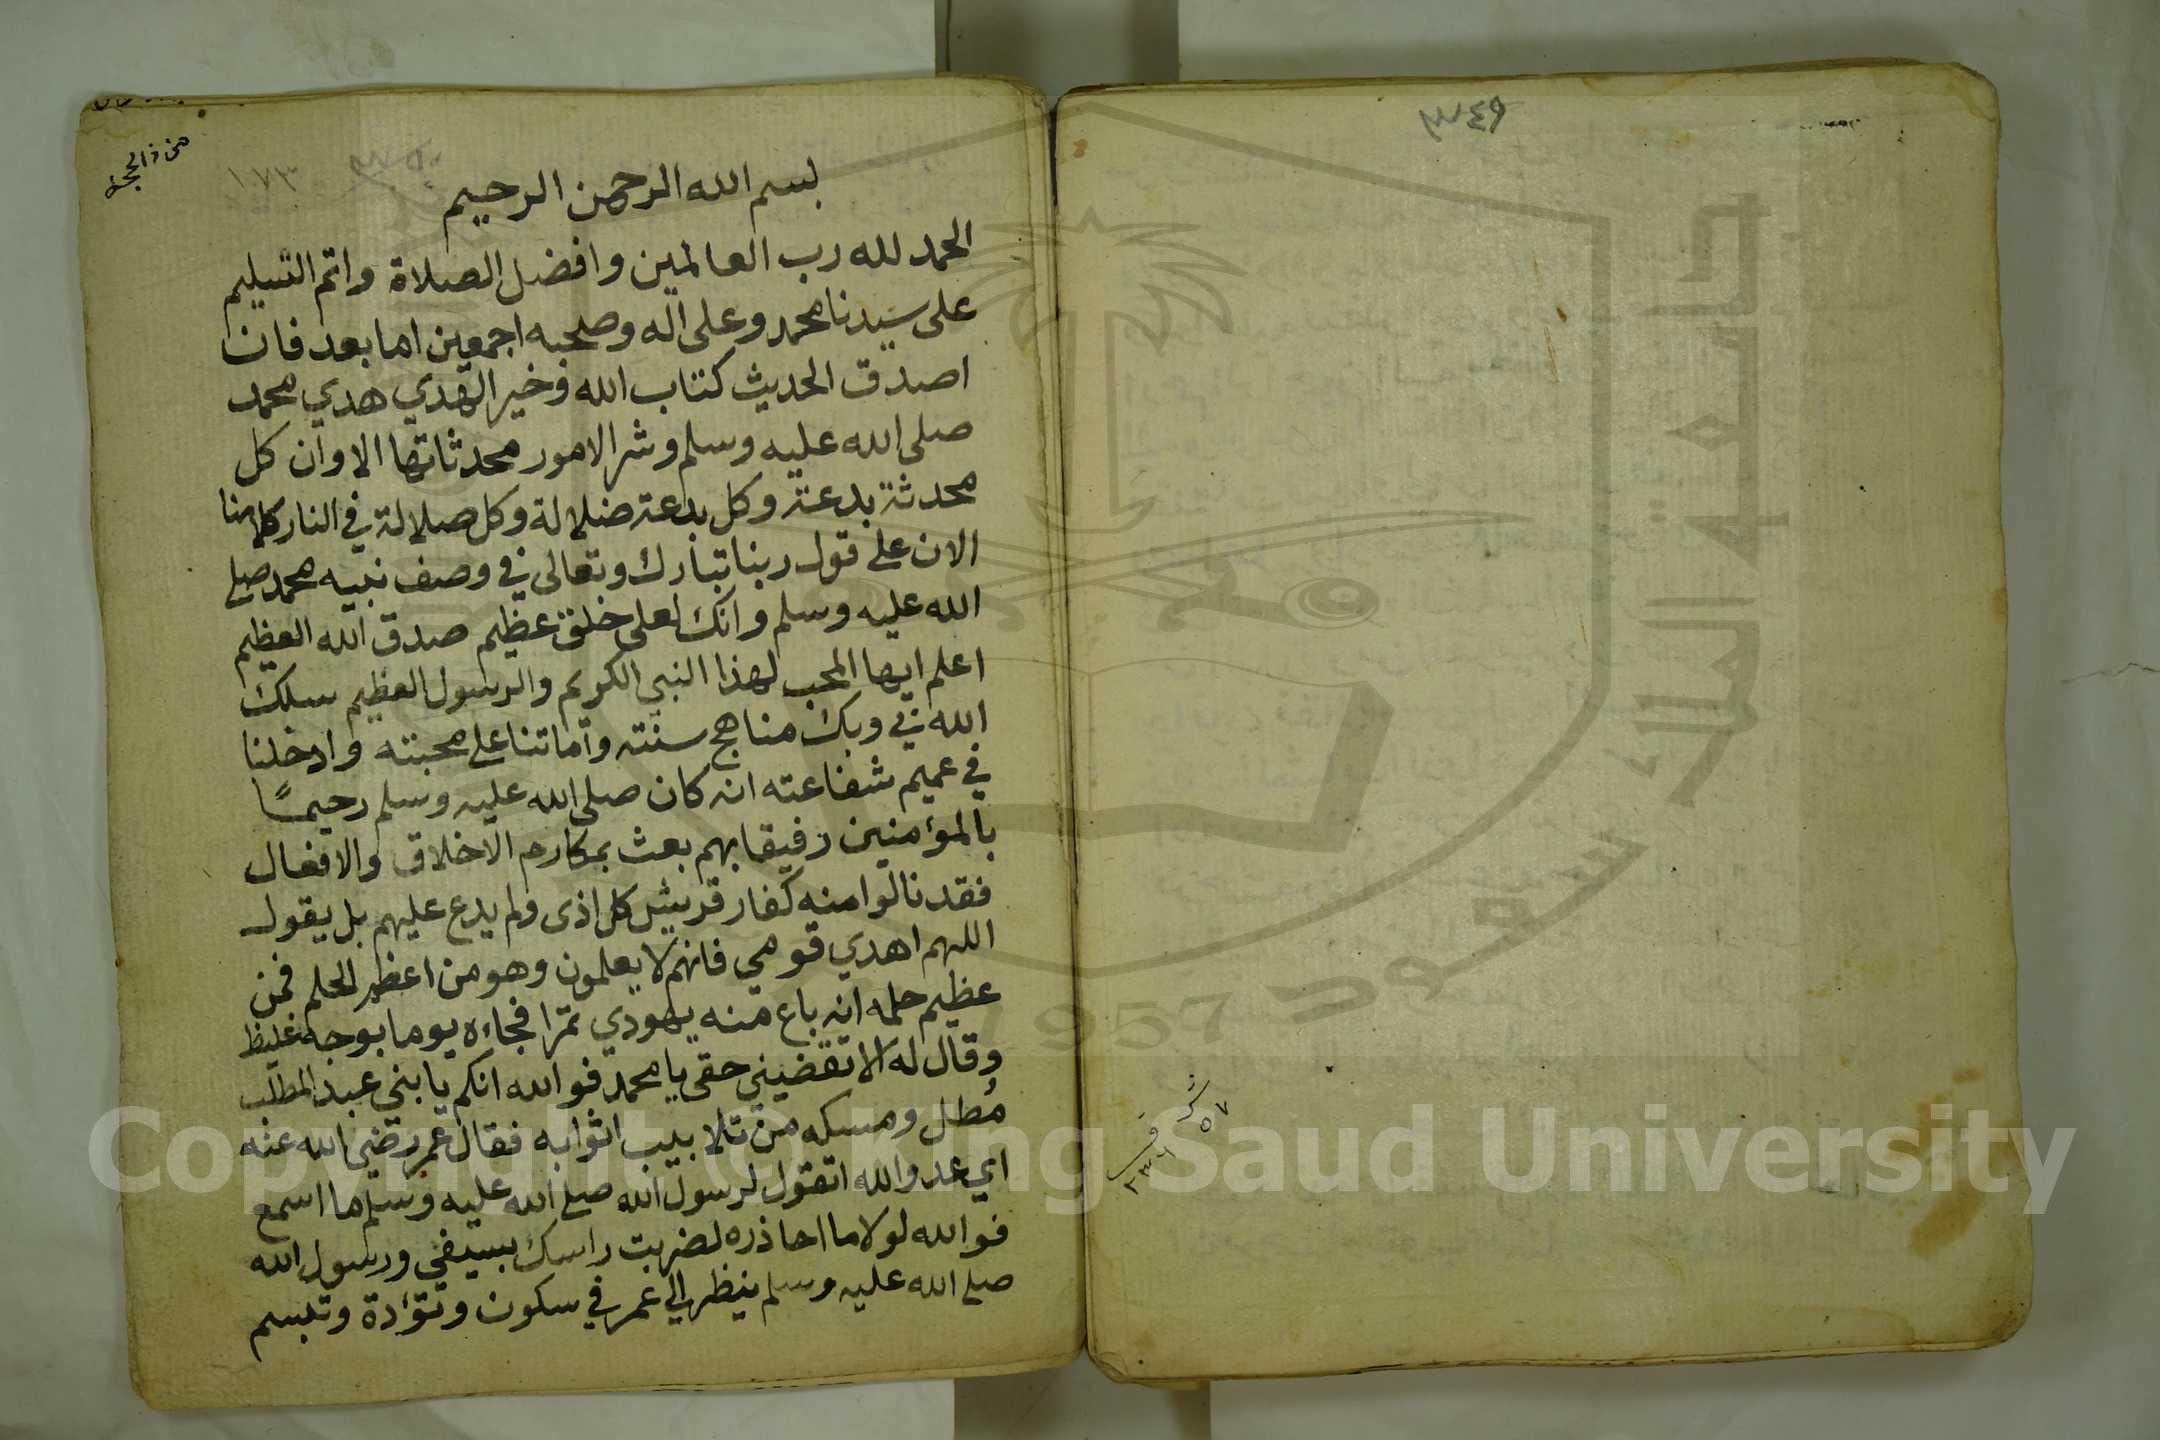 ٣٤٩
من ذالحجة
١٧٣
بسم الله الرحمن الرحيم
الحمد لله رب العالمين وافضل الصلاة واتم التسليم
على سيدنا محمد وعلى آله وصحبه اجمعين اما بعد فان
اصدق الحديث كتاب الله وخير الهدي هدي محمد
صلى الله عليه وسلم وشر الامور محدثاتها الا وان كل
محدثة بدعة وكل بدعة ضلالة وكل ضلالة في النار كلامنا
الان على قول ربنا تبارك وتعالى في وصف نبيه محمد صلى
الله عليه وسلم وانك لعلى خلق عظيم صدق الله العظيم
اعلم ايها المحب لهذا النبي الكريم والرسول العظيم سلك
الله بي وبك مناهج سنته واماتنا على محبته وادخلنا
في عميم شفاعته انه كان صلى الله عليه وسلم رحيمًا
بالمؤمنين رفيقا بهم بعث بمكارم الاخلاق والافعال
فقد نالوا منه كفار قريش كل اذى ولم يدع عليهم بل يقول
اللهم اهدي قومي فانهم لا يعلمون وهو من اعظم الحلم فمن
عظيم حلمه انه باع منه يهودي تمرا فجاءه يوما بوجه غليظ
وقال له الا تقضيني حقي يا محمد فوالله انكم يا بني عبد المطلب
مُطل ومسكه من تلابيب اثوابه فقال عمر رضي الله عنه
اي عدو الله اتقول لرسول الله صلى الله عليه وسلم ما اسمع
فوالله لولا ما احاذره لضربت راسك بسيفي ورسول الله
صلى الله عليه وسلم ينظر الى عمر في سكون وتؤدة وتبسم
جامعة الملك سعود
1957
Copyright © King Saud University